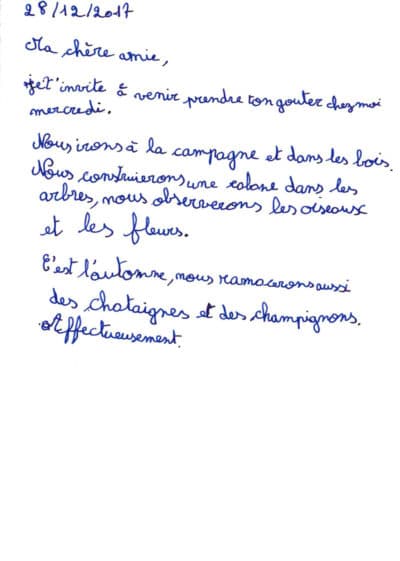 28/12/2017
Ma chère amie,
je t'invite à venir prendre ton gouter chez moi
mercredi.
Nous irons à la campagne et dans les bois.
Nous construierons une cabane dans les
arbres, nous observerons les oiseaux
et les fleurs.
C'est l'automne, nous ramacerons aussi
des chataignes et des champignons.
Affectueusement.